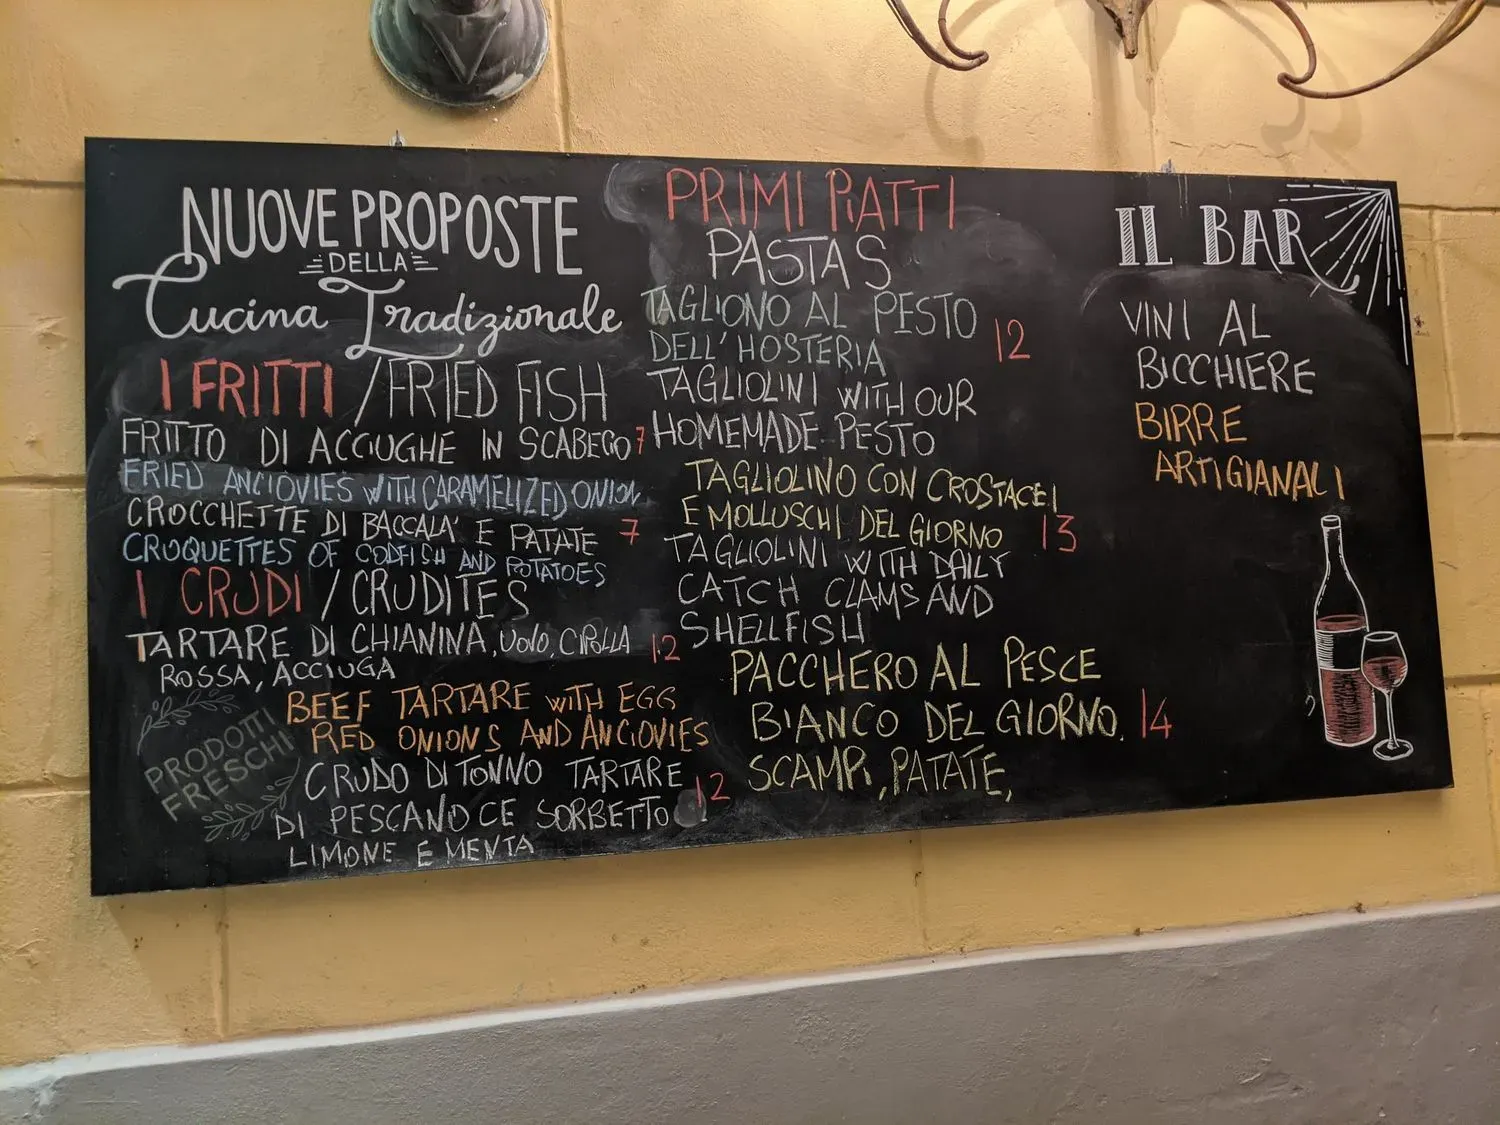 NUOVE PROPOSTE
DELLA
Cucina Tradizionale
I FRITTI / FRIED FISH
FRITTO DI ACCIUGHE IN SCABECIO 7
FRIED ANCIOVIES WITH CARAMELIZED ONION
CROCCHETTE DI BACCALA' E PATATE 7
CROQUETTES OF CODFISH AND POTATOES
I CRUDI / CRUDITES
TARTARE DI CHIANINA, UOVO, CIPOLLA 12
ROSSA, ACCIUGA
BEEF TARTARE WITH EGG
RED ONIONS AND ANCIOVIES
CRUDO DI TONNO TARTARE
DI PESCANOCE SORBETTO 12
LIMONE E MENTA
PRODOTTI
FRESCHI
PRIMI PIATTI
PASTAS
TAGLIONO AL PESTO
DELL'HOSTERIA 12
TAGLIOLINI WITH OUR
HOMEMADE PESTO
TAGLIOLINO CON CROSTACEI
E MOLLUSCHI DEL GIORNO 13
TAGLIOLINI WITH DAILY
CATCH CLAMS AND
SHELLFISH
PACCHERO AL PESCE
BIANCO DEL GIORNO, 14
SCAMPI, PATATE,
IL BAR
VINI AL
BICCHIERE
BIRRE
ARTIGIANALI